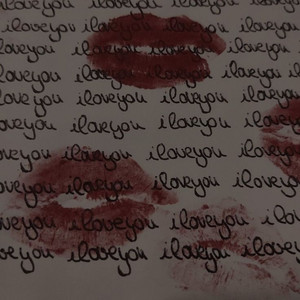 iloveyou iloveyou iloveyou iloveyou
iloveyou iloveyou iloveyou iloveyou
iloveyou iloveyou iloveyou iloveyou
iloveyou iloveyou iloveyou iloveyou
iloveyou iloveyou iloveyou iloveyou
iloveyou iloveyou iloveyou iloveyou
iloveyou iloveyou iloveyou iloveyou
iloveyou iloveyou iloveyou iloveyou
iloveyou iloveyou iloveyou iloveyou
iloveyou iloveyou iloveyou iloveyou